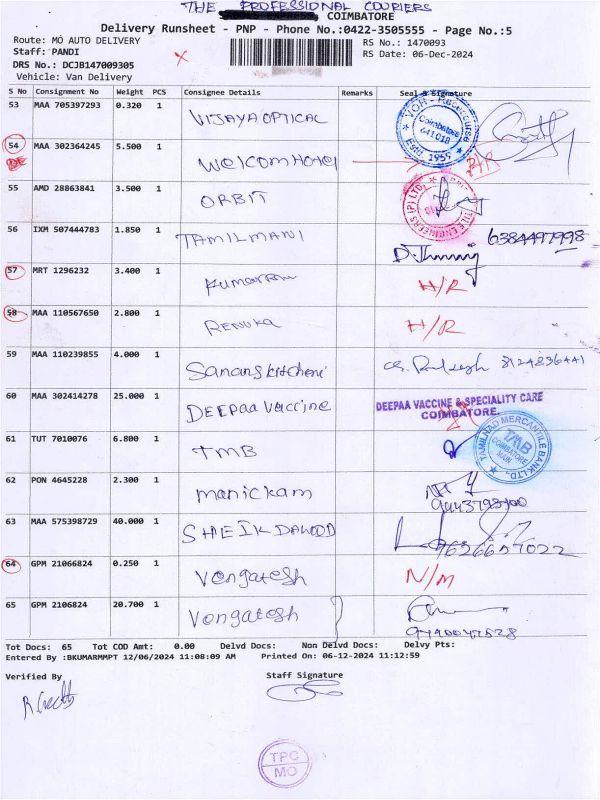 THE PROFESSIONAL COURIERS
COIMBATORE
Delivery Runsheet - PNP - Phone No.:0422-3505555 - Page No.:5
Route: MO AUTO DELIVERY
Staff: PANDI
DRS No.: DCJB147009305
Vehicle: Van Delivery
RS No.: 1470093
RS Date: 06-Dec-2024
S No Consignment No Weight PCS Consignee Details Remarks Seal & Signature
53 MAA 705397293 0.320 1 VIJAYA OPTICAL
Coimbatore 641 018 Estd. 1959
54 MAA 302364245 5.500 1 Welcom Hotel
55 AMD 28863841 3.500 1 ORBIT
56 IXM 507444783 1.850 1 TAMILMANI 6384497998
57 MRT 1296232 3.400 1 Kumaran H/R
58 MAA 110567650 2.800 1 RENUKA H/R
59 MAA 110239855 4.000 1 Sanangkitcheni 8124836441
60 MAA 302414278 25.000 1 DEEPAA Vaccine DEEPAA VACCINE & SPECIALITY CARE
COIMBATORE.
61 TUT 7010076 6.800 1 TMB TAMILNAD MERCANTILE BANK LTD. TMB COIMBATORE MAIN
62 PON 4645228 2.300 1 manickam
63 MAA 575398729 40.000 1 SHEIK DAWOOD 9626657022
64 GPM 21066824 0.250 1 Vengatesh N/M
65 GPM 2106824 20.700 1 Vengatesh
Tot Docs: 65 Tot COD Amt: 0.00 Delvd Docs: Non Delvd Docs: Delvy Pts:
Entered By :BKUMARMMPT 12/06/2024 11:08:09 AM Printed On: 06-12-2024 11:12:59
Verified By Staff Signature
TPC
MO